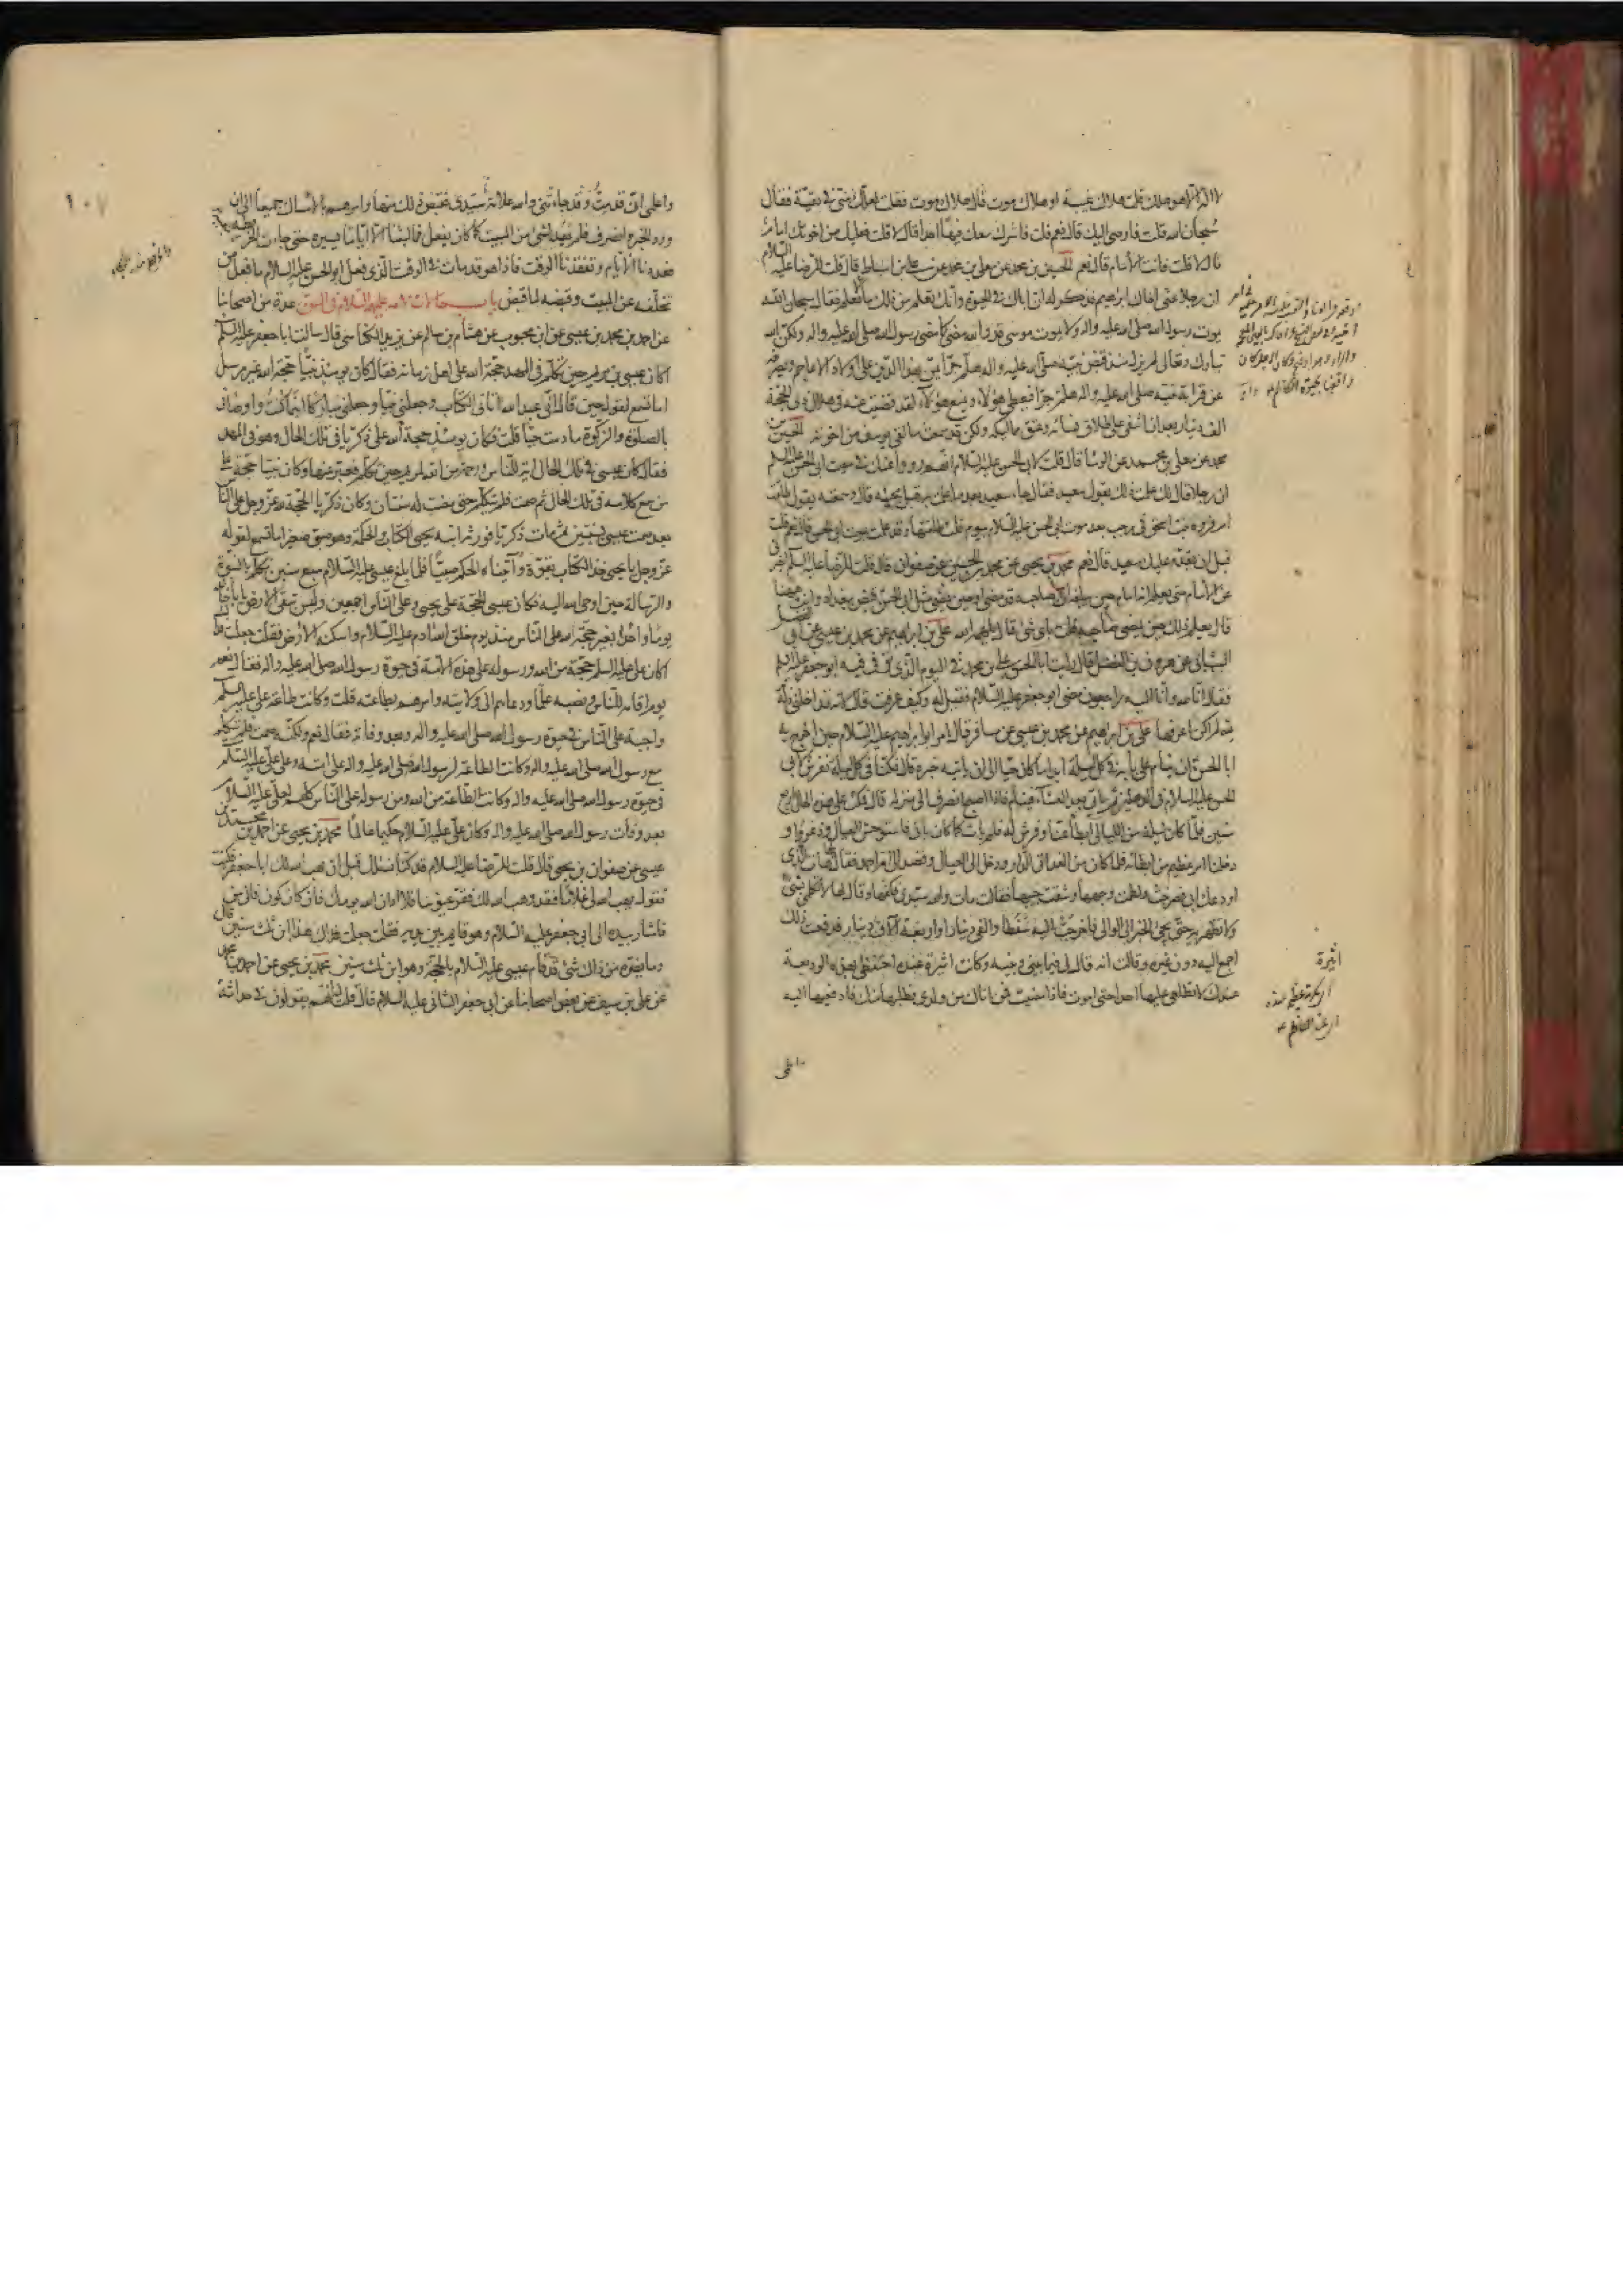 الا له الا هو هلك قلت هلاك غيبة او هلاك موت قال هلاك موت فقلت لعلك منى فى تقية فقال
سبحان الله قلت فاوصى اليك قال نعم قلت فاشرك معك فيها احدا قال لا قلت فعليك من اخوتك امام
قال لا قلت فانت الامام قال نعم الحسين بن محمد عن معلى بن محمد عن على بن اسباط قال قلت للرضا عليه السلام
ان رجلا عنى اخاك ابراهيم فذكر له ان اباك فى الحيوة وانك تعلم من ذلك ما يعلم فقال سبحان الله
يموت رسول الله صلى الله عليه واله ولا يموت موسى قد والله مضى كما مضى رسول الله صلى الله عليه واله ولكن الله
تبارك وتعالى لم يزل منذ قبض نبيه صلى الله عليه واله هلم جرا يمن بهذا الدين على اولاد الاعاجم ويصرفه
عن قرابة نبيه صلى الله عليه واله هلم جرا فيعطى هؤلاء ويمنع هؤلاء لقد قضيت عنه فى هلال ذى الحجة
الف دينار بعد ان اشفى على طلاق نسائه وعتق مماليكه ولكن قد سمعت ما لقى يوسف من اخوته الحسين بن
محمد عن معلى بن محمد عن الوشا قال قلت لابى الحسن عليه السلام انهم رووا عنك فى موت ابى الحسن عليه السلم
ان رجلا قال لك علمت ذلك بقول سعيد فقال جاء سعيد بعد ما علمت به قبل مجيئه قال وسمعته يقول طلقت
ام فروة بنت اسحق فى رجب بعد موت ابى الحسن عليه السلام بيوم قلت طلقتها وقد علمت بموت ابى الحسن قال نعم قلت
قبل ان يقدم عليك سعيد قال نعم محمد بن يحيى عن محمد بن الحسين عن صفوان قال قلت للرضا عليه السلم اخبرنى
عن الامام متى يعلم انه امام حين يبلغه ان صاحبه قد مضى او حين يمضى مثل ابى الحسن قبض ببغداد وانت هيهنا
قال يعلم ذلك حين يمضى صاحبه قلت باى شئ قال يلهمه الله على بن ابراهيم عن محمد بن عيسى عن ابى الفضل
الشهبانى عن هرون بن الفضل قال رايت ابا الحسن على بن محمد فى اليوم الذى توفى فيه ابو جعفر عليه السلم
فقال انا لله وانا اليه راجعون مضى ابو جعفر عليه السلام فقيل له وكيف عرفت قال لانه تداخلنى ذلة
لله لم اكن اعرفها على بن ابراهيم عن محمد بن عيسى عن مسافر قال امر ابو ابراهيم عليه السلام حين اخرج به
ابا الحسن ان ينام على بابه فى كل ليلة ابدا ما كان حيا الى ان ياتيه خبره قال فكنا فى كل ليلة نفرش لابى
الحسن عليه السلام فى الدهليز ثم ياتى بعد العشاء فينام فاذا اصبح انصرف الى منزله قال فمكث على هذه الحال اربع
سنين فلما كان ليلة من الليالى ابطا عنا وفرش له فلم يات كما كان ياتى فاستوحش العيال وذعروا و
دخلنا امر عظيم من ابطائه فلما كان من الغد اتى الدار ودخل الى العيال وقصد الى ام احمد فقال لها هات الذى
اودعك ابى فصرخت ولطمت وجهها وشقت جيبها وقالت مات والله سيدى فكفها وقال لها لا تكلمى بشئ
ولا تظهريه حتى يجئ الخبر الى الوالى فاخرجت اليه سفطا والفى دينار او اربعة آلاف دينار فدفعت ذلك
اجمع اليه دون غيره وقالت انه قال لى فيما بينى وبينه وكانت اثيرة عنده احتفظى بهذه الوديعة
عندك لا تطلعى عليها احدا حتى اموت فاذا مضيت فمن اتاك من ولدى فطلبها منك فادفعيها اليه
اثيرة
واعلمى
١٠٧
واعلمى انى قدمت وقد جاءتنى والله علامة سيدى فقبض ذلك منها وامرهم بالامساك جميعا الى ان
ورد الخبر وانصرف فلم يعد لشئ من المبيت كما كان يفعل فما لبثنا الا اياما يسيرة حتى جاءت الخريطة بنعيه
فعددنا الايام وتفقدنا الوقت فاذا هو قد مات فى الوقت الذى فعل ابو الحسن عليه السلام ما فعل من
تخلفه عن المبيت وقبضه لما قبض باب حالات الائمه عليهم السلام فى السن عدة من اصحابنا
عن احمد بن محمد بن عيسى عن ابن محبوب عن هشام بن سالم عن يزيد الكناسى قال سالت ابا جعفر عليه السلم
اكان عيسى بن مريم حين تكلم فى المهد حجة الله على اهل زمانه فقال كان يومئذ نبيا حجة الله غير مرسل
اما تسمع لقوله حين قال انى عبد الله اتانى الكتاب وجعلنى نبيا وجعلنى مباركا اينما كنت واوصانى
بالصلوة والزكوة ما دمت حيا قلت فكان يومئذ حجة الله على زكريا فى تلك الحال وهو فى المهد
فقال كان عيسى فى تلك الحال اية للناس ورحمة من الله لمريم حين تكلم فعبر عنها وكان نبيا حجة على
من سمع كلامه فى تلك الحال ثم صمت فلم يتكلم حتى مضت له سنتان وكان زكريا الحجة لله عز وجل على الناس
بعد صمت عيسى بسنتين ثم مات زكريا فورثه ابنه يحيى الكتاب والحكمة وهو صبى صغير اما تسمع لقوله
عز وجل يا يحيى خذ الكتاب بقوة وآتيناه الحكم صبيا فلما بلغ عيسى عليه السلام سبع سنين تكلم بالنبوة
والرسالة حين اوحى الله اليه فكان عيسى الحجة على يحيى وعلى الناس اجمعين وليس تبقى الارض يا با خالد
يوما واحدا بغير حجة لله على الناس منذ يوم خلق الله ادم عليه السلام واسكنه الارض فقلت جعلت فداك
اكان على عليه السلم حجة من الله ورسوله على هذه الامة فى حيوة رسول الله صلى الله عليه واله فقال نعم
يوم اقامه للناس ونصبه علما ودعاهم الى ولايته وامرهم بطاعته قلت وكانت طاعة على عليه السلم
واجبة على الناس فى حيوة رسول الله صلى الله عليه واله وبعد وفاته فقال نعم ولكنه صمت فلم يتكلم
مع رسول الله صلى الله عليه واله وكانت الطاعة لرسول الله صلى الله عليه واله على امته وعلى على عليه السلم
فى حيوة رسول الله صلى الله عليه واله وكانت الطاعة من الله ومن رسوله على الناس كلهم لعلى عليه السلام
بعد وفات رسول الله صلى الله عليه واله وكان على عليه السلام حكيما عالما محمد بن يحيى عن احمد بن محمد بن
عيسى عن صفوان بن يحيى قال قلت للرضا عليه السلام قد كنا نسالك قبل ان يهب الله لك ابا جعفر فكنت
تقول يهب الله لى غلاما فقد وهب الله لك فقر عيوننا فلا ارانا الله يومك فان كان كون فالى من
فاشار بيده الى ابى جعفر عليه السلام وهو قائم بين يديه فقلت جعلت فداك هذا ابن ثلث سنين قال
وما يضره من ذلك شئ قد قام عيسى عليه السلام بالحجة وهو ابن ثلث سنين محمد بن يحيى عن احمد بن محمد
عن على بن سيف عن بعض اصحابنا عن ابى جعفر الثانى عليه السلام قال قلت له انهم يقولون فى حداثة